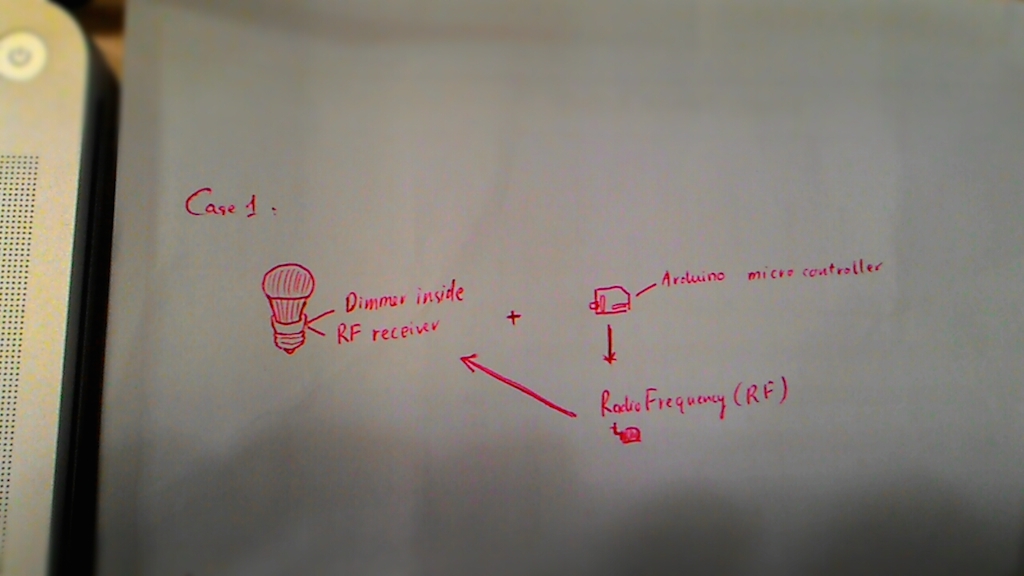 Case 1 :
Dimmer inside
RF receiver
+
Arduino micro controller
Radio Frequency (RF)